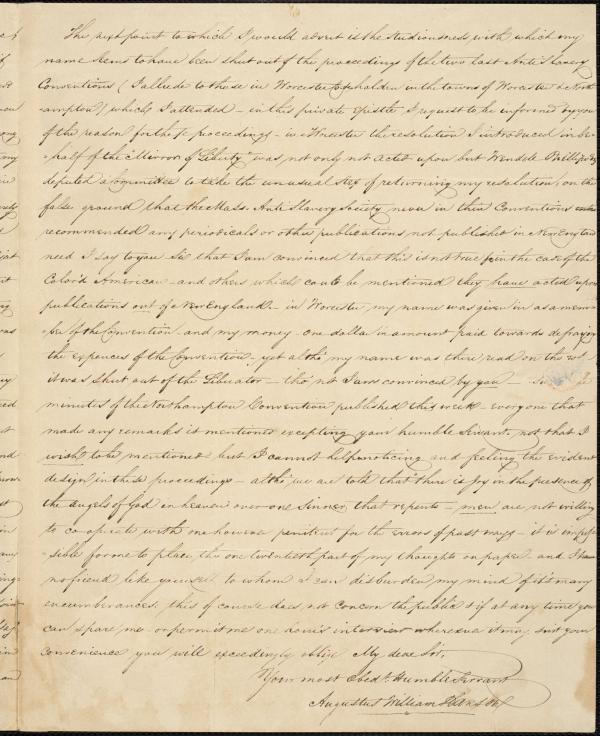 The next point to which I would advert is the studiousness with which my
name seems to have been shut out of the proceedings of the two last Anti Slavery
Conventions (I allude to those in Worcester holden in the towns of Worcester & North
-ampton) which I attended - in this private epistle I request to be informed by you
of the reason for these proceedings - in Worcester the resolution I introduced in be-
-half of the "Mirror of Liberty" was not only not acted upon but Wendell Phillips Esq
deputed a Committee to take the unusual step of returning my resolution, on the
false ground that the Mass. Anti Slavery Society never in their Conventions
recommended any periodicals or other publications not published in New England
need I say to you Sir that I am convinced that this is not true, in the case of the
Color'd American - and others which could be mentioned they have acted upon
publications out of New England - in Worcester my name was given in as a mem-
-ber of the Convention - and my money - one dollar in amount paid towards defraying
the expences of the Convention; yet altho' my name was there read on the roll,
it was shut out of the Liberator - tho' not I am convinced by you - In the
minutes of the Northampton Convention published this week - every one that
made any remarks is mentioned excepting your humble Servant, not that I
wish to be mentioned but I cannot help noticing and feeling the evident
design in these proceedings - altho' we are told that there is joy in the presence of
the angels of God in heaven over one Sinner that repents - men are not willing
to co-operate with one however penitent for the errors of past ways - it is impos-
-sible for me to place the one twentieth part of my thoughts on paper and I have
no friend like yourself to whom I can disburden my mind of it's many
encumbrances; this of course does not concern the public & if at any time you
can spare me or permit me one hour's interview wherever it may suit your
convenience you will exceedingly oblige My dear Sir,
Your most Obedt. Humble Servant
Augustus William Hanson